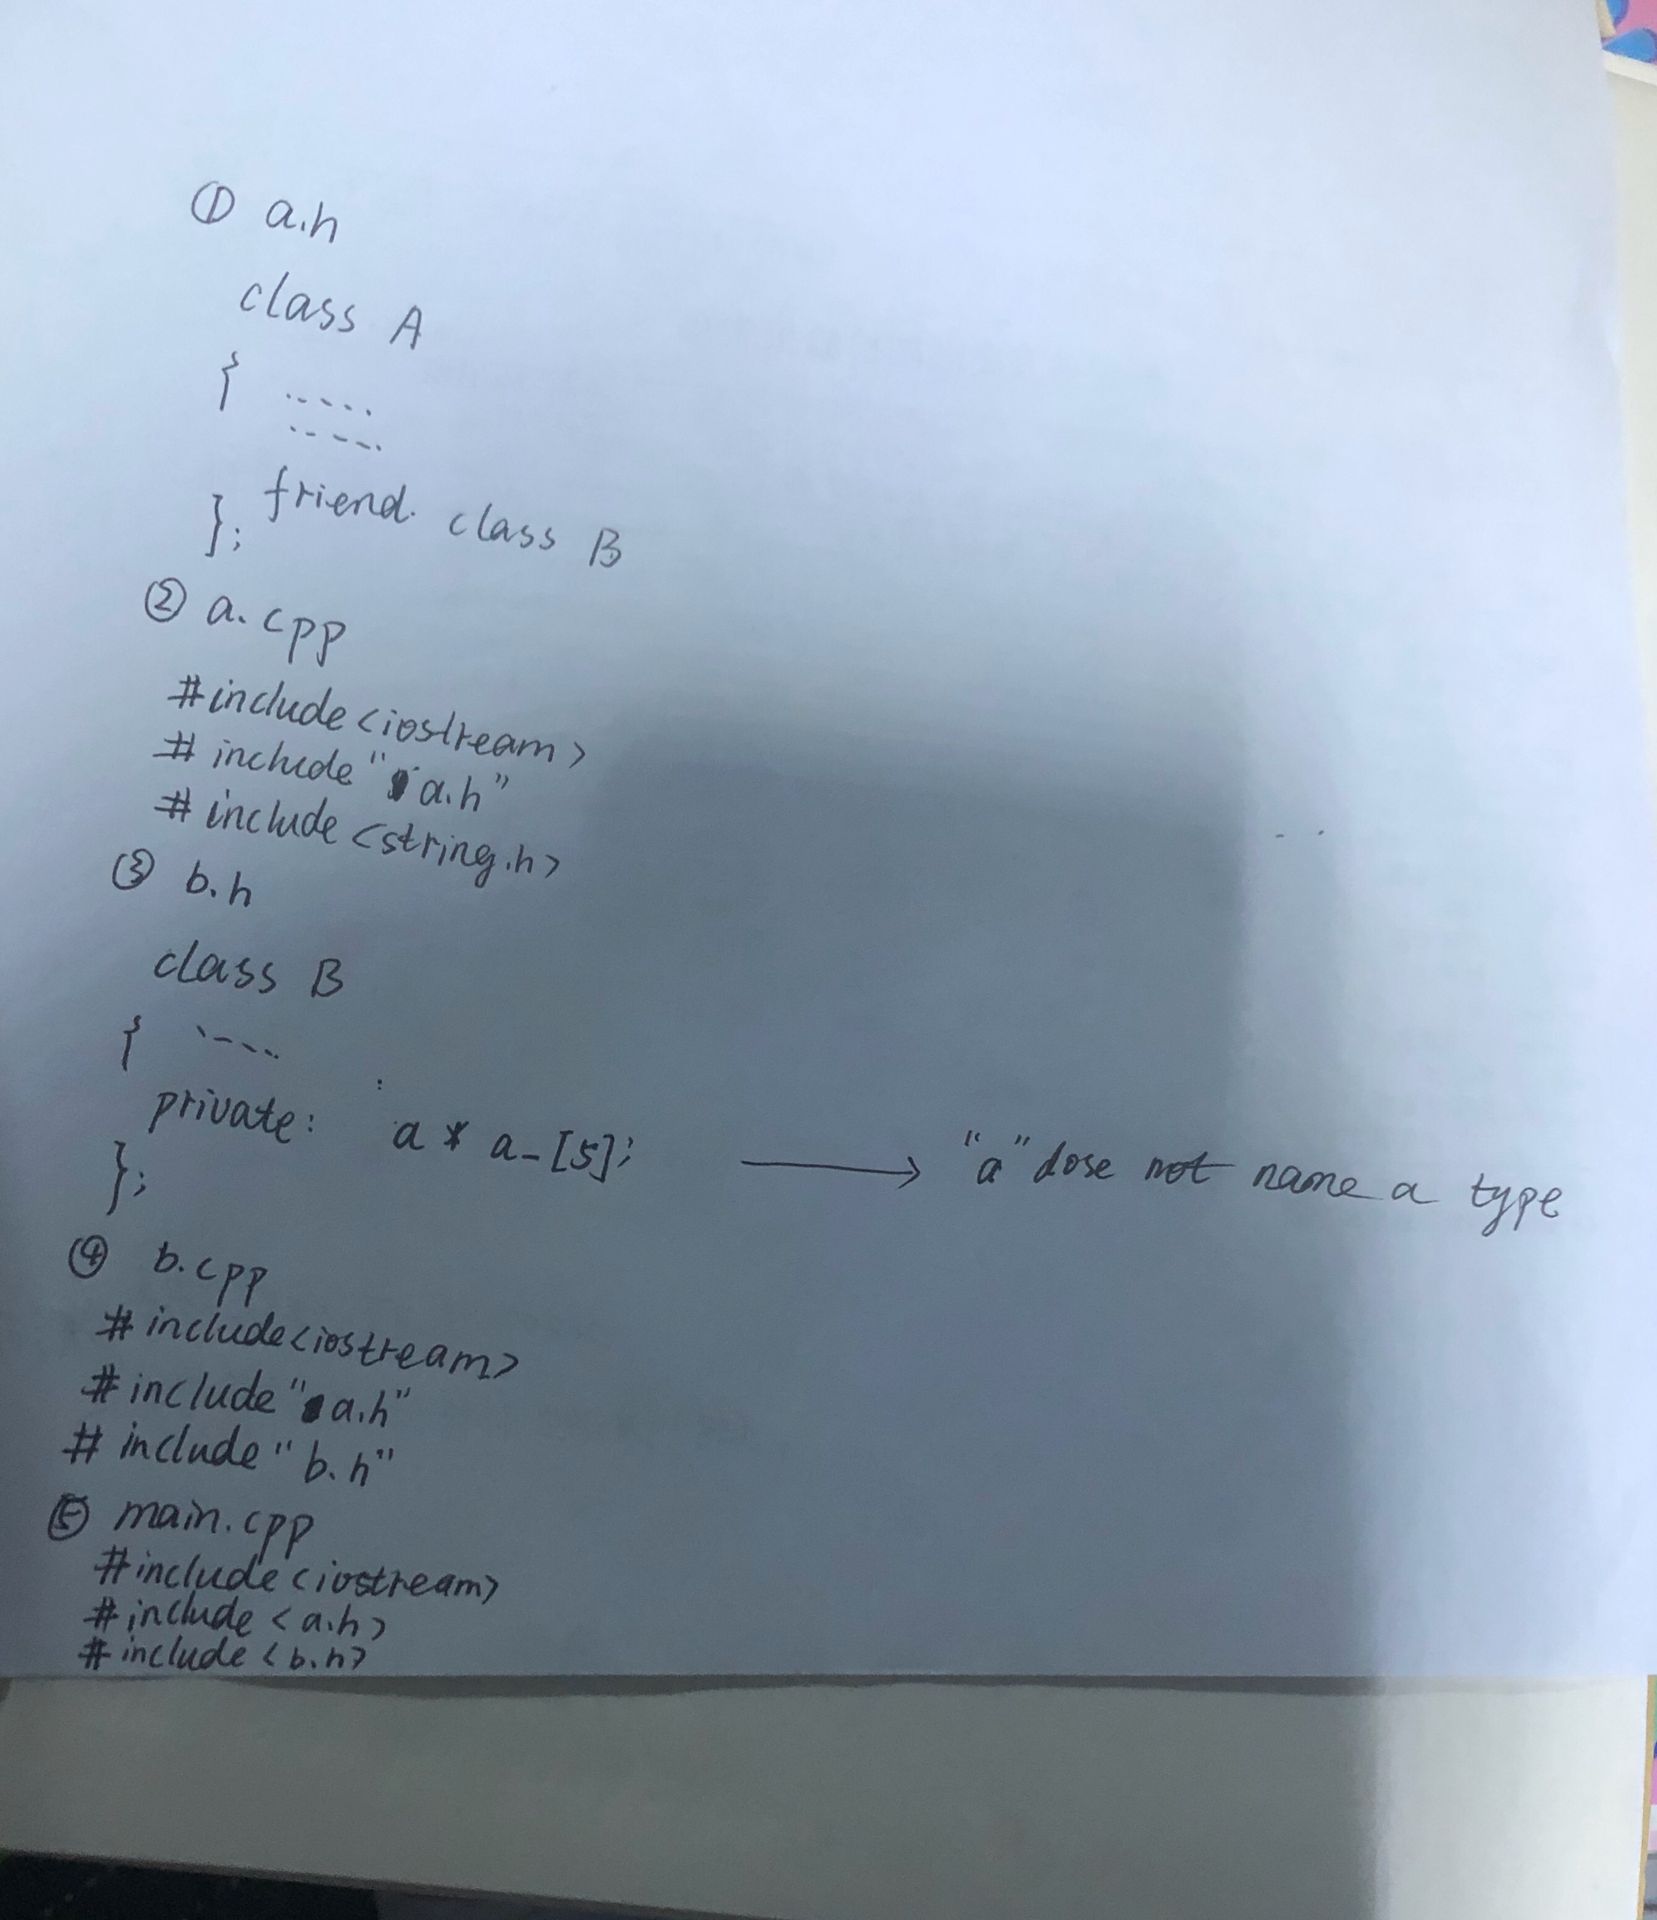 ① a.h
class A
{ .....
-----
friend. class B
};
② a.cpp
#include<iostream>
# include" a.h"
# include <string.h>
③ b.h
class B
{ ----
private: a * a_[5]; → "a" dose not name a type
};
④ b.cpp
# include<iostream>
# include" a.h"
# include" b.h"
⑤ main.cpp
#include<iostream>
# include < a.h>
# include < b.h>